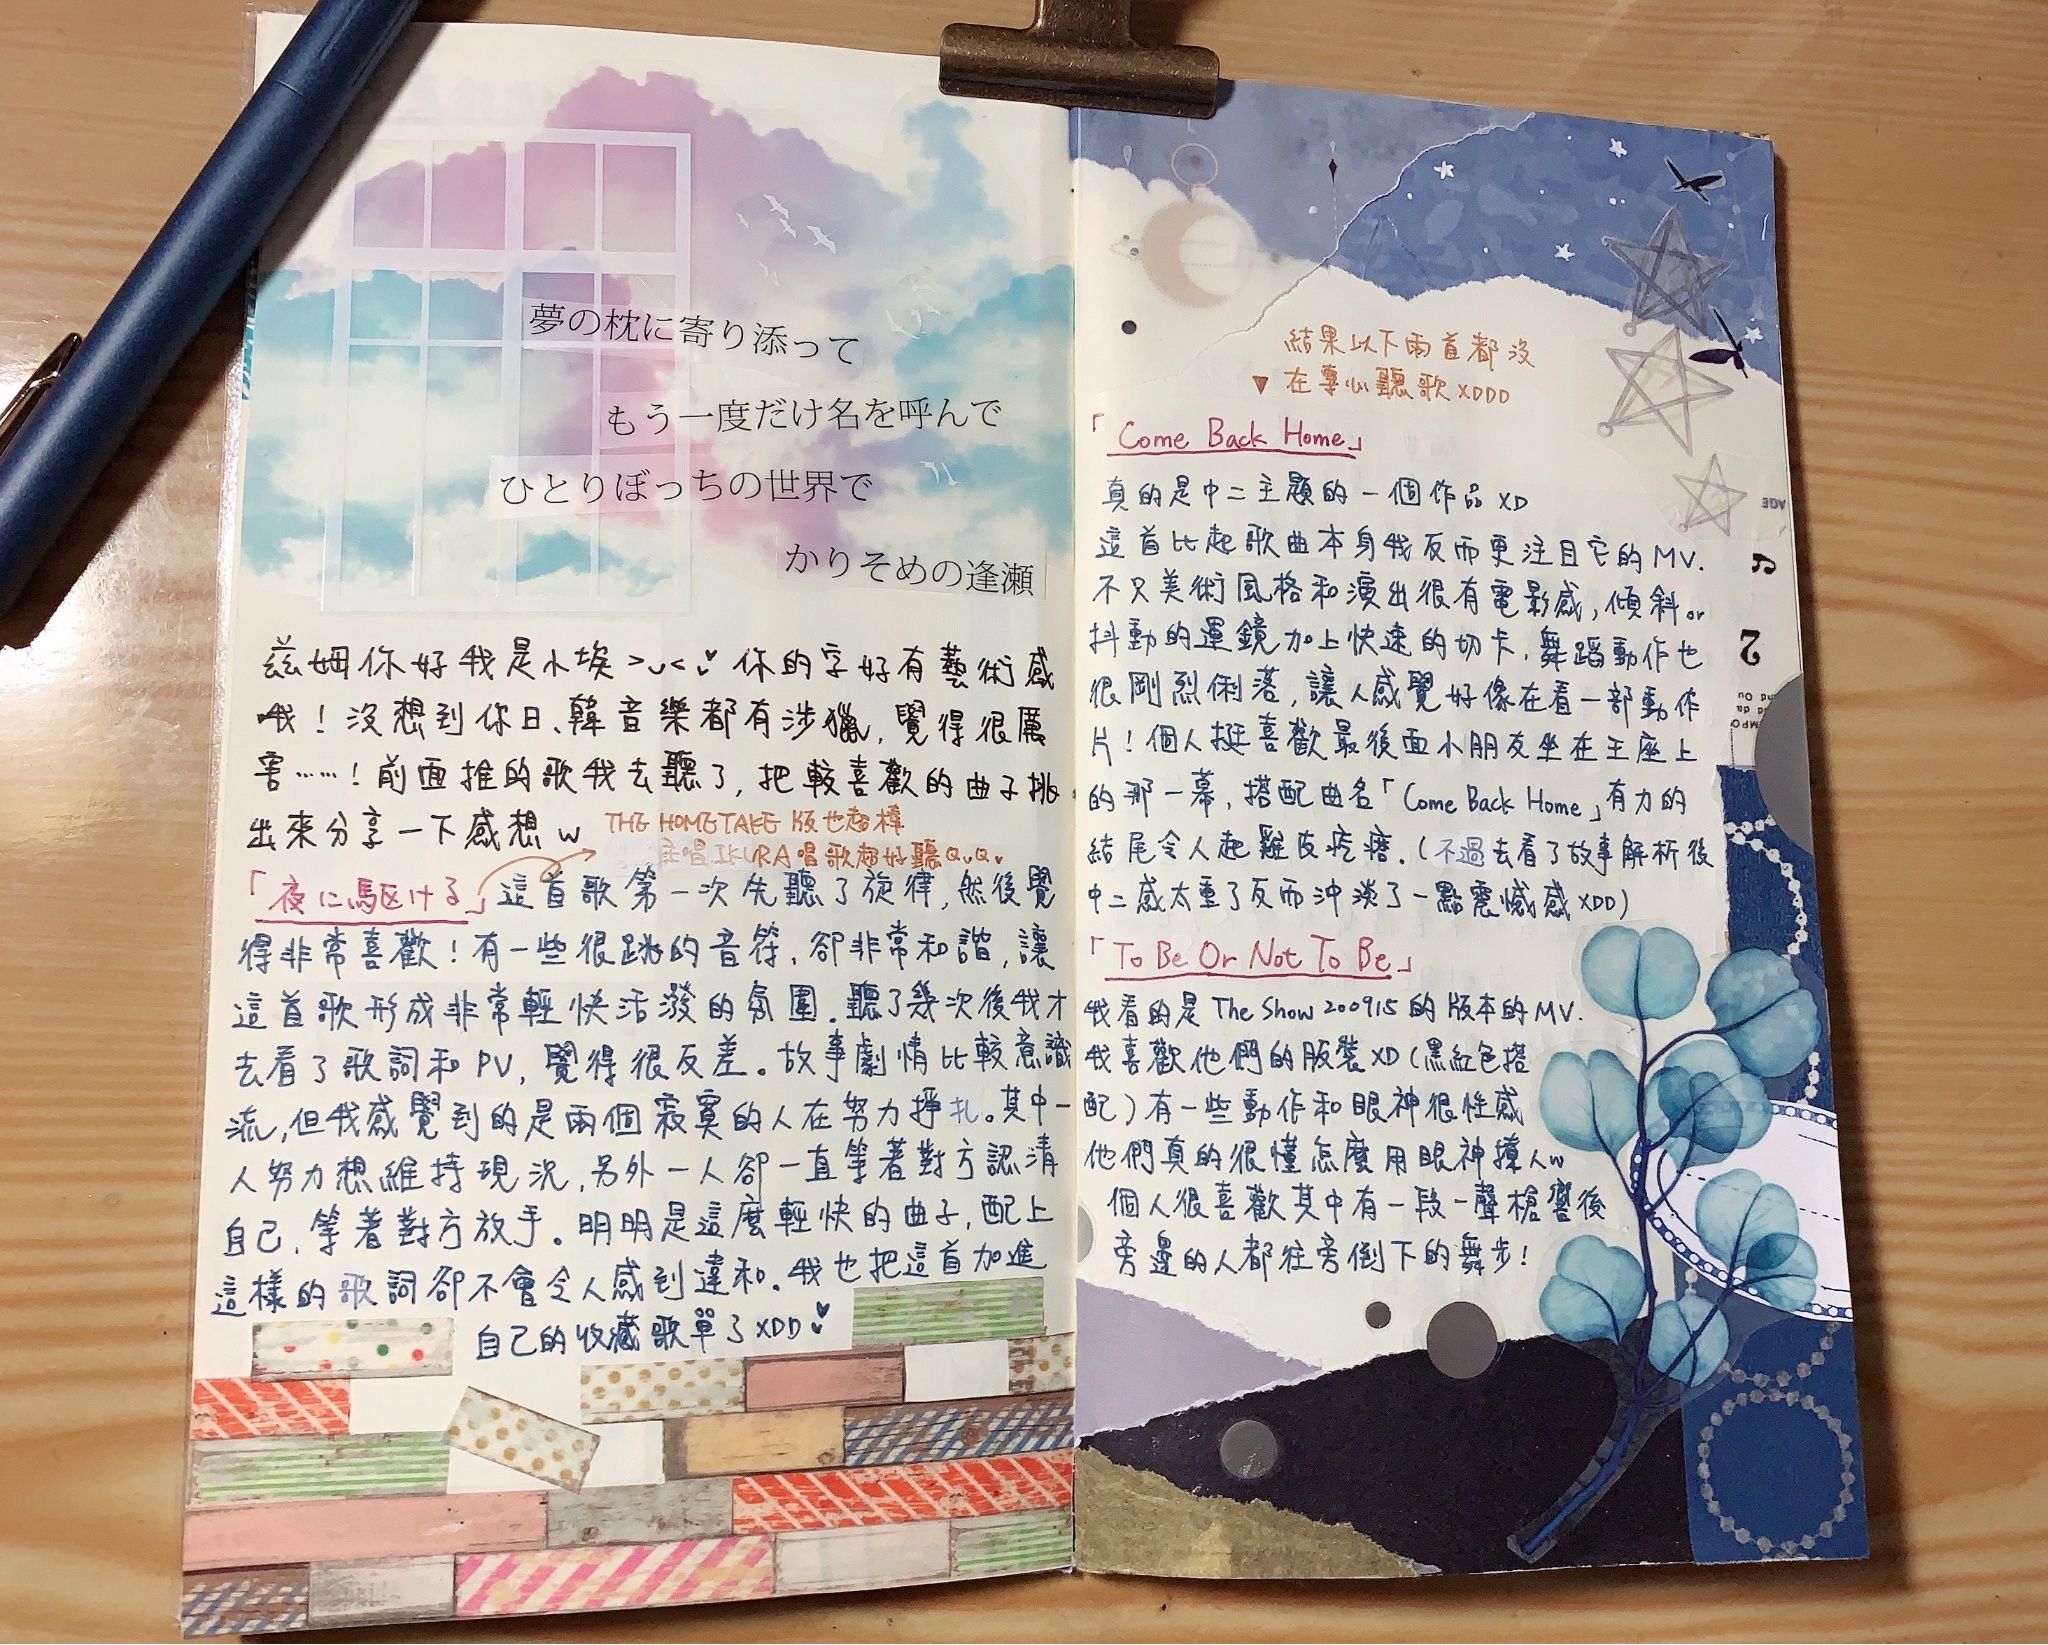 夢の枕に寄り添って
もう一度だけ名を呼んで
ひとりぼっちの世界で
かりそめの逢瀬
茲姆你好我是小埃>u<♥ 你的字好有藝術感
哦！沒想到你日、韓音樂都有涉獵，覺得很厲
害……！前面推的歌我去聽了，把較喜歡的曲子挑
出來分享一下感想w
THE HOME TAKE 版也超棒
主唱IKURA唱歌超好聽QuQ♥
「夜に駆ける」這首歌第一次先聽了旋律，然後覺
得非常喜歡！有一些很跳的音符，卻非常和諧，讓
這首歌形成非常輕快活潑的氛圍。聽了幾次後我才
去看了歌詞和PV，覺得很反差。故事劇情比較意識
流，但我感覺到的是兩個寂寞的人在努力掙扎。其中一
人努力想維持現況，另外一人卻一直等著對方認清
自己，等著對方放手。明明是這麼輕快的曲子，配上
這樣的歌詞卻不會令人感到違和。我也把這首加進
自己的收藏歌單了XDD♥
結果以下兩首都沒
▼ 在專心聽歌XDDD
「Come Back Home」
真的是中二主題的一個作品XD
這首比起歌曲本身我反而更注目它的MV.
不只美術風格和演出很有電影感，傾斜or
抖動的運鏡加上快速的切卡，舞蹈動作也
很剛烈俐落，讓人感覺好像在看一部動作
片！個人挺喜歡最後面小朋友坐在王座上
的那一幕，搭配曲名「Come Back Home」有力的
結尾令人起雞皮疙瘩.（不過去看了故事解析後
中二感太重了反而沖淡了一點震憾感XDD）
「To Be Or Not To Be」
我看的是The Show 200915的版本的MV.
我喜歡他們的服裝XD（黑紅色搭
配）有一些動作和眼神很性感
他們真的很懂怎麼用眼神撩人w
個人很喜歡其中有一段一聲槍響後
旁邊的人都往旁倒下的舞步！
AGE
2